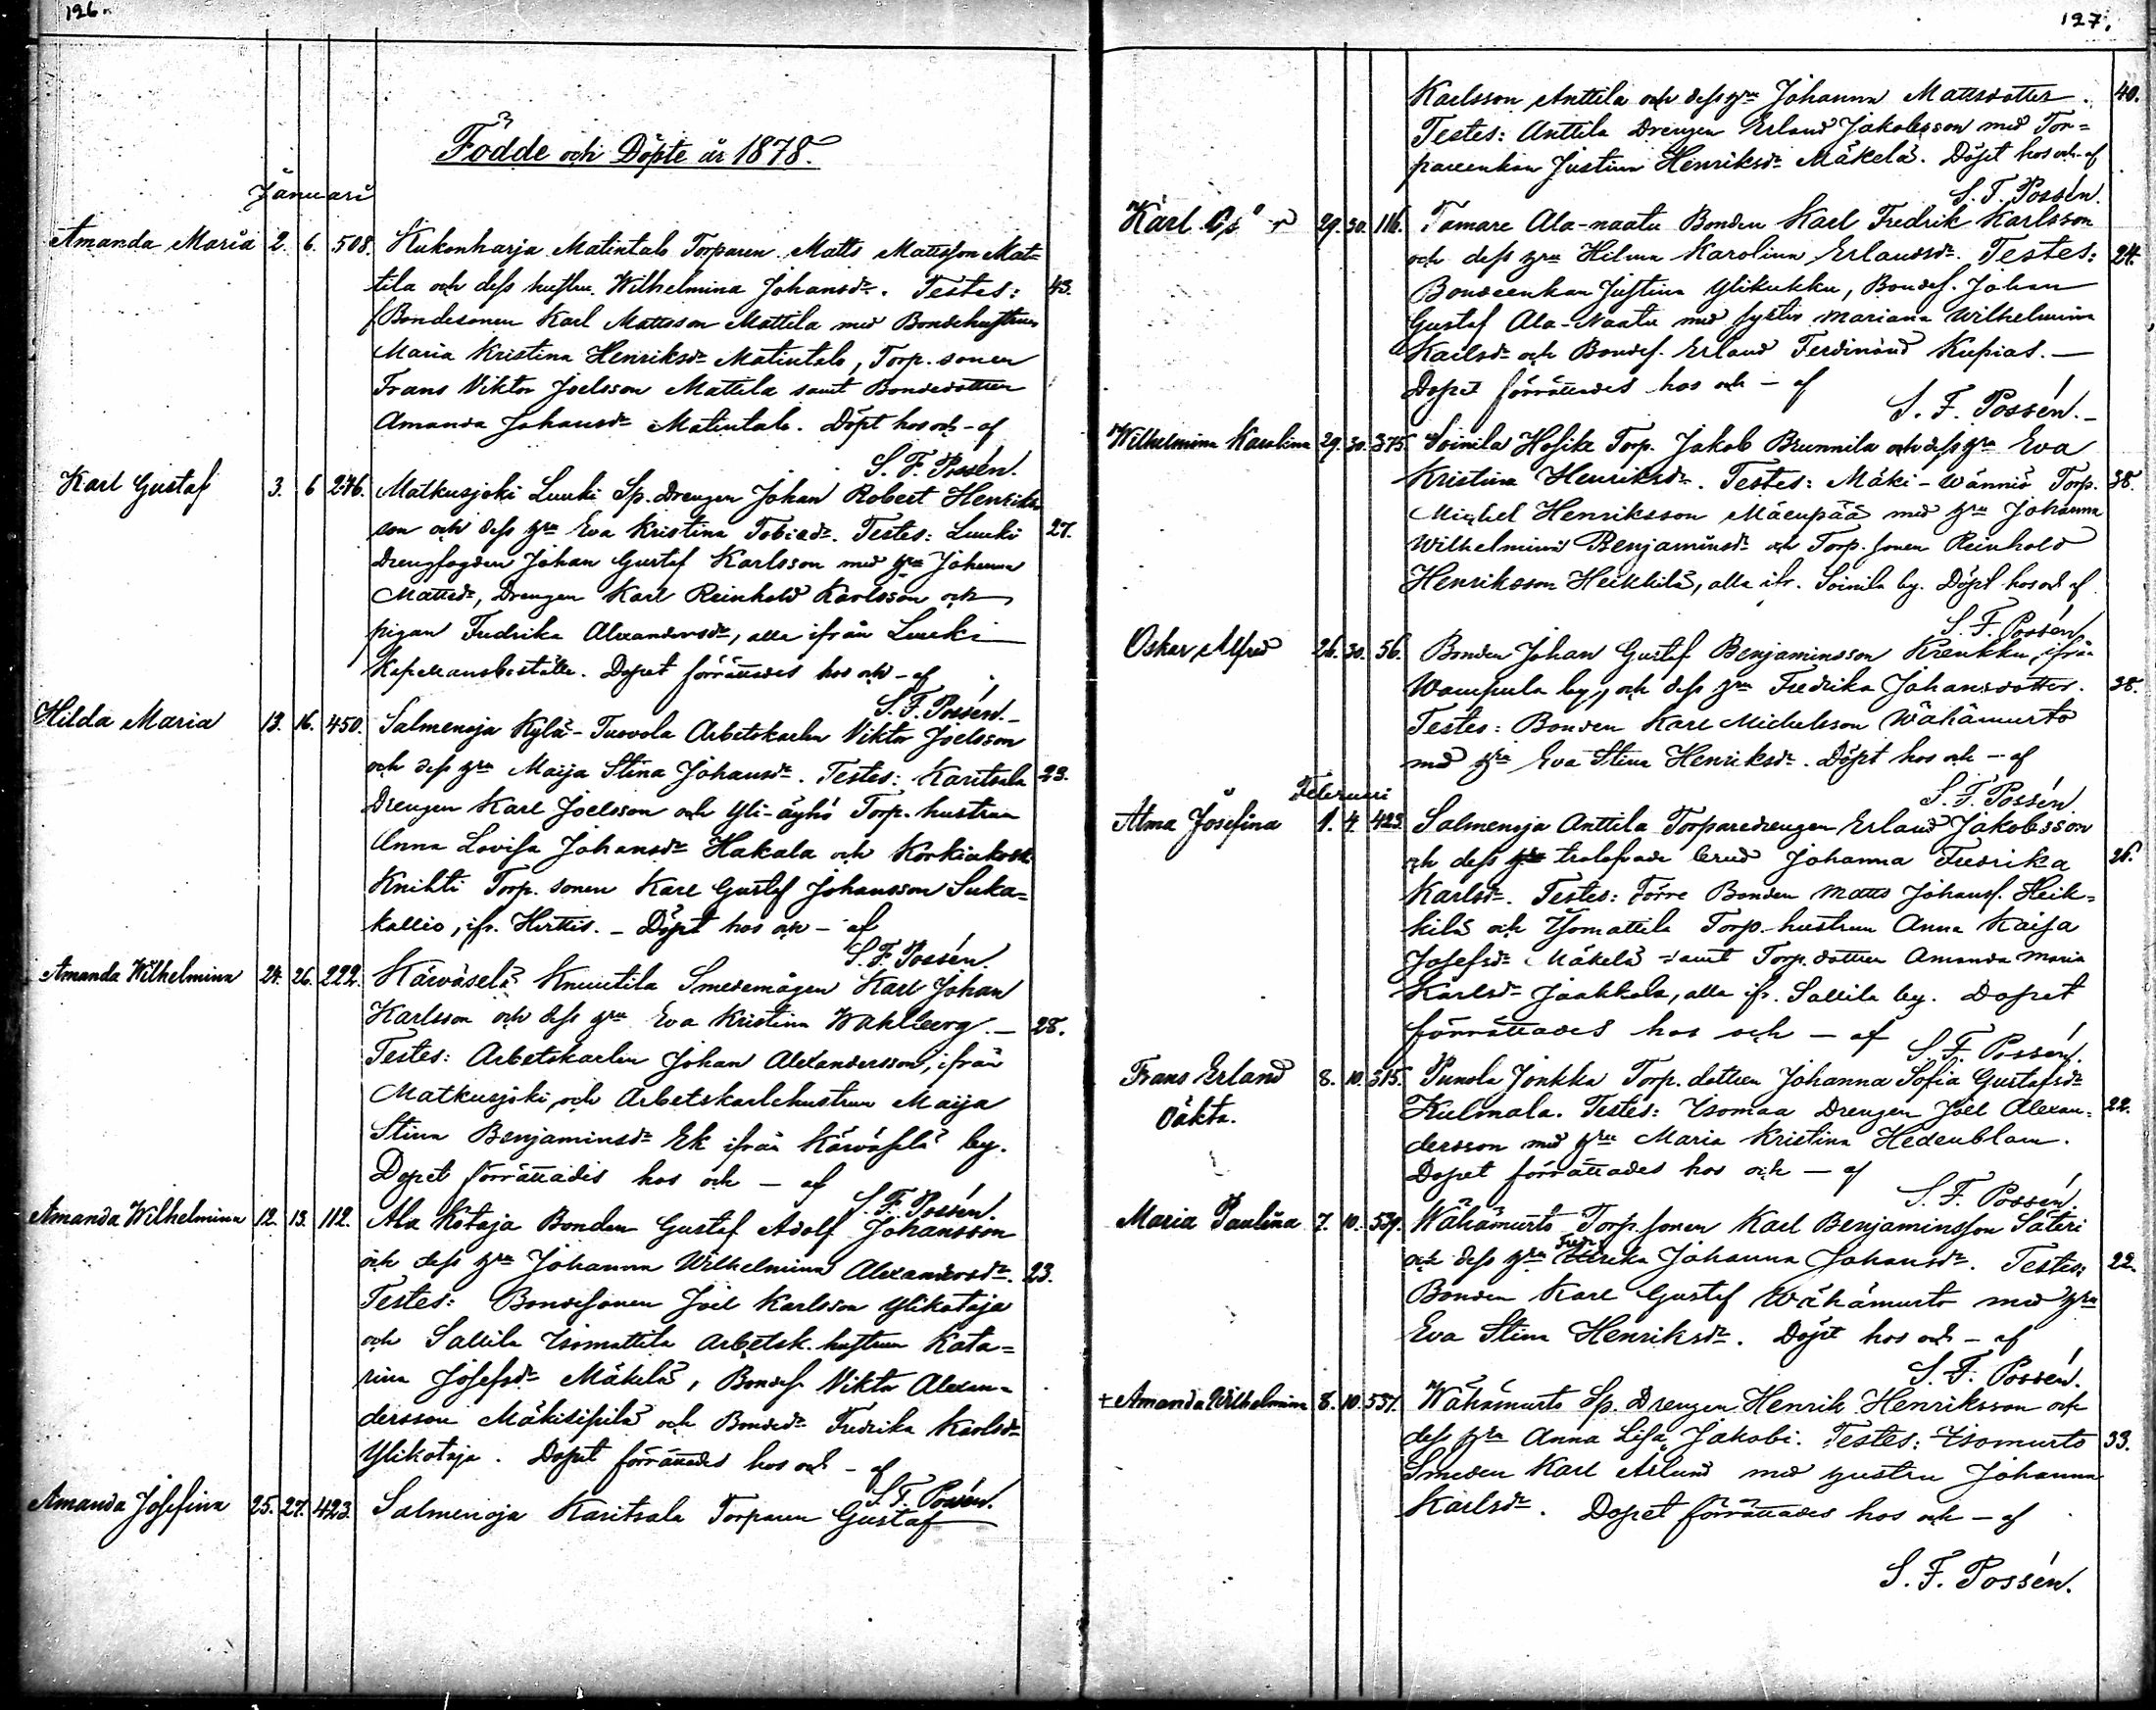 126.
Födde och Döpte år 1878.
Januari
Amanda Maria 2. 6. 508. Kukonharja Matintalo Torparen Matts Mattsson Mat=
tila och dess hustru Wilhelmina Johansdr. Testes: 43.
Bondesonen Karl Mattsson Mattila med Bondehustrun
Maria Kristina Henriksdr Matintalo, Torp. sonen
Frans Viktor Joelsson Mattila samt Bondedottren
Amanda Johansdr Matintalo. Döpt hos och - af
S. F. Possén.
Karl Gustaf 3. 6 276. Matkusjoki Luuki Sp. drengen Johan Robert Henriks
son och dess hru Eva Kristina Tobiedr. Testes: Luuki 27.
Drengfogden Johan Gustaf Karlsson med hru Johanna
Mattsdr, Drengen Karl Reinhold Karlsson och
pigan Fredrika Alexandersdr, alla ifrån Luuki
Kapellansboställe. Dopet förrättades hos och - af
S. F. Possén.
Hilda Maria 13. 16. 450. Salmenoja Kylä-Tuovola Arbetskarlen Viktor Joelsson
och dess hru Maija Stina Johansdr. Testes: Karitsala 23.
Drengen Karl Joelsson och Yli-äyhö Torp. hustrun
Anna Lovisa Johansdr Hakala och Korkiakoski
Knihti Torp. sonen Karl Gustaf Johansson Suka=
kallio, ifr. Hirttis. - Döpt hos och - af
S. F. Possén.
Amanda Wilhelmina 24. 26. 222. Kärväselä Knuutila Smedemågen Karl Johan
Karlsson och dess hru Eva Kristina Wahlberg. - 28.
Testes: Arbetskarlen Johan Alexandersson, ifrån
Matkusjoki, och Arbetskarlehustrun Maija
Stina Benjaminsdr Ek ifrån Kärväselä by.
Dopet förrättades hos och - af
S. F. Possén.
Amanda Wilhelmina 12. 13. 112. Ala Kötaja Bonden Gustaf Adolf Johansson
och dess hru Johanna Wilhelmina Alexandersdr. 23.
Testes: Bondesonen Joel Karlsson Ylikotaja
och Sallila Isomattila Arbetsk. hustrun Kata=
rina Josefsdr Mäkelä, Bondes. Viktor Alexan=
dersson Mäkisipilä och Bondedr Fredrika Karlsdr
Ylikotaja. Dopet förrättades hos och - af
S. F. Possén.
Amanda Josefina 25. 27. 423. Salmenoja Karitsala Torparen Gustaf
127.
Karlsson Anttila och dess hru Johanna Mattsdotter. 40.
Testes: Anttila Drengen Erland Jakobsson med Tor=
parenkan Justina Henriksdr Mäkelä. Döpt hos och - af
S. F. Possén.
Karl 29. 30. 116. Tamare Ala-naatu Bonden Karl Fredrik Karlsson
och dess hru Hilma Karolina Erlandsdr. Testes: 24.
Bondeenkan Justina Ylikukku, Bondes. Johan
Gustaf Ala-Naatu med syster Mariana Wilhelmina
Karlsdr och Bondes. Erland Ferdinand Kupias. -
Dopet förrättades hos och - af
S. F. Possén. -
Wilhelmina Karolina 29. 30. 375. Soinila Hosike Torp. Jakob Brunnila och dess hru Eva
Kristina Henriksdr. Testes: Mäki-Wänniö Torp. 38.
Michel Henriksson Mäenpää med hru Johanna
Wilhelmina Benjaminsdr och Torp. sonen Reinhold
Henriksson Heikkilä, alla ifr. Soinila by. Döpt hos och af
S. F. Possén
Oskar Alfred 26. 30. 56. Bonden Johan Gustaf Benjaminsson Krenkku, ifrån
Wampula by, och dess hru Fredrika Johansdotter. 38.
Testes: Bonden Karl Michelsson Wähämurto
med hru Eva Stina Henriksdr. Döpt hos och - af
S. F. Possén.
Februari
Alma Josefina 1. 4. 423. Salmenoja Anttila Torparedrengen Erland Jakobsson
och dess trolofvade brud Johanna Fredrika 26.
Karlsdr. Testes: Förre Bonden Matts Johanss. Heik=
kilä och Isomattila Torp. hustrun Anna Kaisa
Josefsdr Mäkelä samt Torp. dottren Amanda Maria
Karlsdr Jaakkola, alla ifr. Sallila by. Dopet
förrättades hos och - af
S. F. Possén.
Frans Erland 8. 10. 315. Punola Jonkka Torp. dottren Johanna Sofia Gustafsdr
Oäkta. Kulmala. Testes: Isomaa Drengen Joel Alexan= 22.
dersson med hru Maria Kristina Hedenblom.
Dopet förrättades hos och - af
S. F. Possén.
Maria Paulina 7. 10. 539. Wähämurto Torp. sonen Karl Benjaminsson Säteri
och dess hru Fredrika Johanna Johansdr. Testes: 22.
Bonden Karl Gustaf Wähämurto med hru
Eva Stina Henriksdr. Döpt hos och - af
S. F. Possén.
+ Amanda Wilhelmina 8. 10. 537. Wähämurto Sp. Drengen Henrik Henriksson och
dess hru Anna Lisa Jakobi. Testes: Isomurto 33.
Smeden Karl Aslund med hustru Johanna
Karlsdr. Dopet förrättades hos och - af
S. F. Possén.